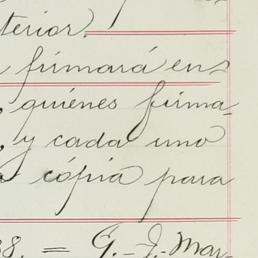 terior.
firmará en-
, quiénes firma-
, y cada uno
cópia para
38. = G. J. Mar-